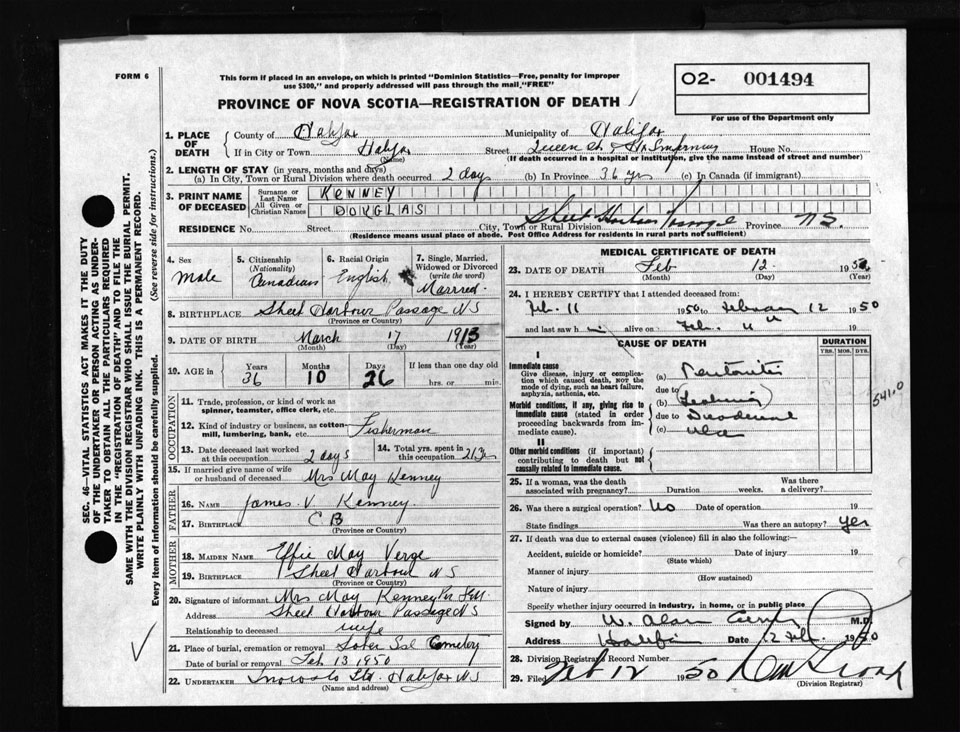 FORM 6
This form if placed in an envelope, on which is printed "Dominion Statistics—Free, penalty for improper
use $300," and properly addressed will pass through the mail "FREE"
O2- 001494
For use of the Department only
PROVINCE OF NOVA SCOTIA—REGISTRATION OF DEATH
1. PLACE OF DEATH
County of Halifax Municipality of Halifax
If in City or Town Halifax Street Queen St House No.
(Name) (If death occurred in a hospital or institution, give the name instead of street and number)
2. LENGTH OF STAY (in years, months and days)
(a) In City, Town or Rural Division where death occurred 2 days (b) In Province 36 yrs (c) In Canada (if immigrant)
3. PRINT NAME OF DECEASED
Surname or Last Name KENNEY
All Given or Christian Names DOUGLAS
RESIDENCE No. Street City, Town or Rural Division Sheet Harbour Passage Province N.S.
(Residence means usual place of abode. Post Office Address for residents in rural parts not sufficient)
4. Sex Male
5. Citizenship (Nationality) Canadian
6. Racial Origin English
7. Single, Married, Widowed or Divorced (write the word) Married
8. BIRTHPLACE Sheet Harbour Passage NS
(Province or Country)
9. DATE OF BIRTH March 17 1913
(Month) (Day) (Year)
10. AGE in Years 36 Months 10 Days 26 If less than one day old
hrs. or min.
OCCUPATION
11. Trade, profession, or kind of work as
spinner, teamster, office clerk, etc.
12. Kind of industry or business, as cotton-
mill, lumbering, bank, etc. Fisherman
13. Date deceased last worked
at this occupation 2 days
14. Total yrs. spent in
this occupation
15. If married give name of wife
or husband of deceased Mrs May Kenney
FATHER
16. NAME James V Kenney
17. BIRTHPLACE C B
(Province or Country)
MOTHER
18. MAIDEN NAME Effie May Verge
19. BIRTHPLACE Sheet Harbour NS
(Province or Country)
20. Signature of informant Mrs May Kenney
Address Sheet Harbour Passage NS
Relationship to deceased wife
21. Place of burial, cremation or removal Sober Isl Cemetery
Date of burial or removal Feb 13 1950
22. UNDERTAKER Snows Ltd Halifax NS
(Name and address)
MEDICAL CERTIFICATE OF DEATH
23. DATE OF DEATH Feb 12 1950
(Month) (Day) (Year)
24. I HEREBY CERTIFY that I attended deceased from:
Feb. 11 1950 to February 12 1950
and last saw h alive on Feb. 19
CAUSE OF DEATH
DURATION
YRS. MOS. DYS.
I
Immediate cause
Give disease, injury or complica-
tion which caused death, not the
mode of dying, such as heart failure,
asphyxia, asthenia, etc.
(a) Peritonitis
due to
(b)
Morbid conditions, if any, giving rise to
immediate cause (stated in order
proceeding backwards from im-
mediate cause).
due to Duodenal
(c) ulcer
5410
II
Other morbid conditions (if important)
contributing to death but not
causally related to immediate cause.
25. If a woman, was the death
associated with pregnancy? Duration weeks. Was there
a delivery?
26. Was there a surgical operation? No Date of operation 19
State findings Was there an autopsy? yes
27. If death was due to external causes (violence) fill in also the following:—
Accident, suicide or homicide? Date of injury 19
(State which)
Manner of injury
(How sustained)
Nature of injury
Specify whether injury occurred in industry, in home, or in public place
Signed by W. Alan M.D.
Address Halifax Date 12 Feb. 1950
28. Division Registrar's Record Number
29. Filed Feb 12 1950
(Division Registrar)
SEC. 46—VITAL STATISTICS ACT MAKES IT THE DUTY
OF THE UNDERTAKER OR PERSON ACTING AS UNDER-
TAKER TO OBTAIN ALL THE PARTICULARS REQUIRED
IN THE "REGISTRATION OF DEATH" AND TO FILE THE
SAME WITH THE DIVISION REGISTRAR WHO SHALL ISSUE THE BURIAL PERMIT.
WRITE PLAINLY WITH UNFADING INK. THIS IS A PERMANENT RECORD.
Every item of information should be carefully supplied. (See reverse side for instructions.)